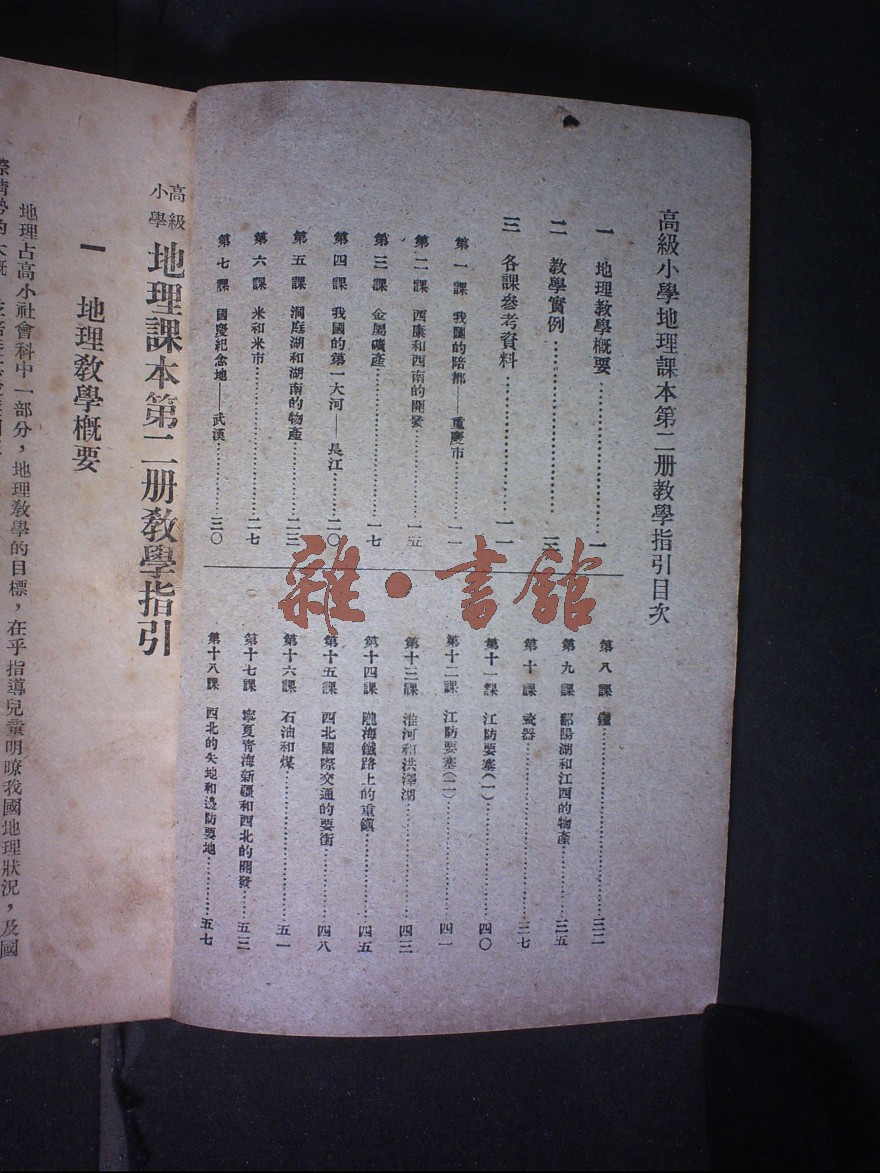 高級小學地理課本第二册教學指引目次
一 地理教學概要…………一
二 教學實例…………三
三 各課參考資料…………一一
第一課 我國的陪都——重慶市…………一一
第二課 西康和西南的開發…………一五
第三課 金屬礦產…………一七
第四課 我國的第一大河——長江…………二〇
第五課 洞庭湖和湖南的物產…………二三
第六課 米和米市…………二七
第七課 國慶紀念地——武漢…………三〇
第八課 鐵…………三二
第九課 鄱陽湖和江西的物產…………三五
第十課 瓷器…………三七
第十一課 江防要塞(一)…………四〇
第十二課 江防要塞(二)…………四一
第十三課 淮河和洪澤湖…………四三
第十四課 隴海鐵路上的重鎮…………四五
第十五課 西北國際交通的要衝…………四八
第十六課 石油和煤…………五一
第十七課 寧夏青海新疆和西北的開發…………五三
第十八課 西北的失地和邊防要地…………五七
雜·書館
高級小學 地理課本第二册教學指引
一 地理教學概要
地理占高小社會科中一部分，地理教學的目標，在乎指導兒童明瞭我國地理狀況，及國